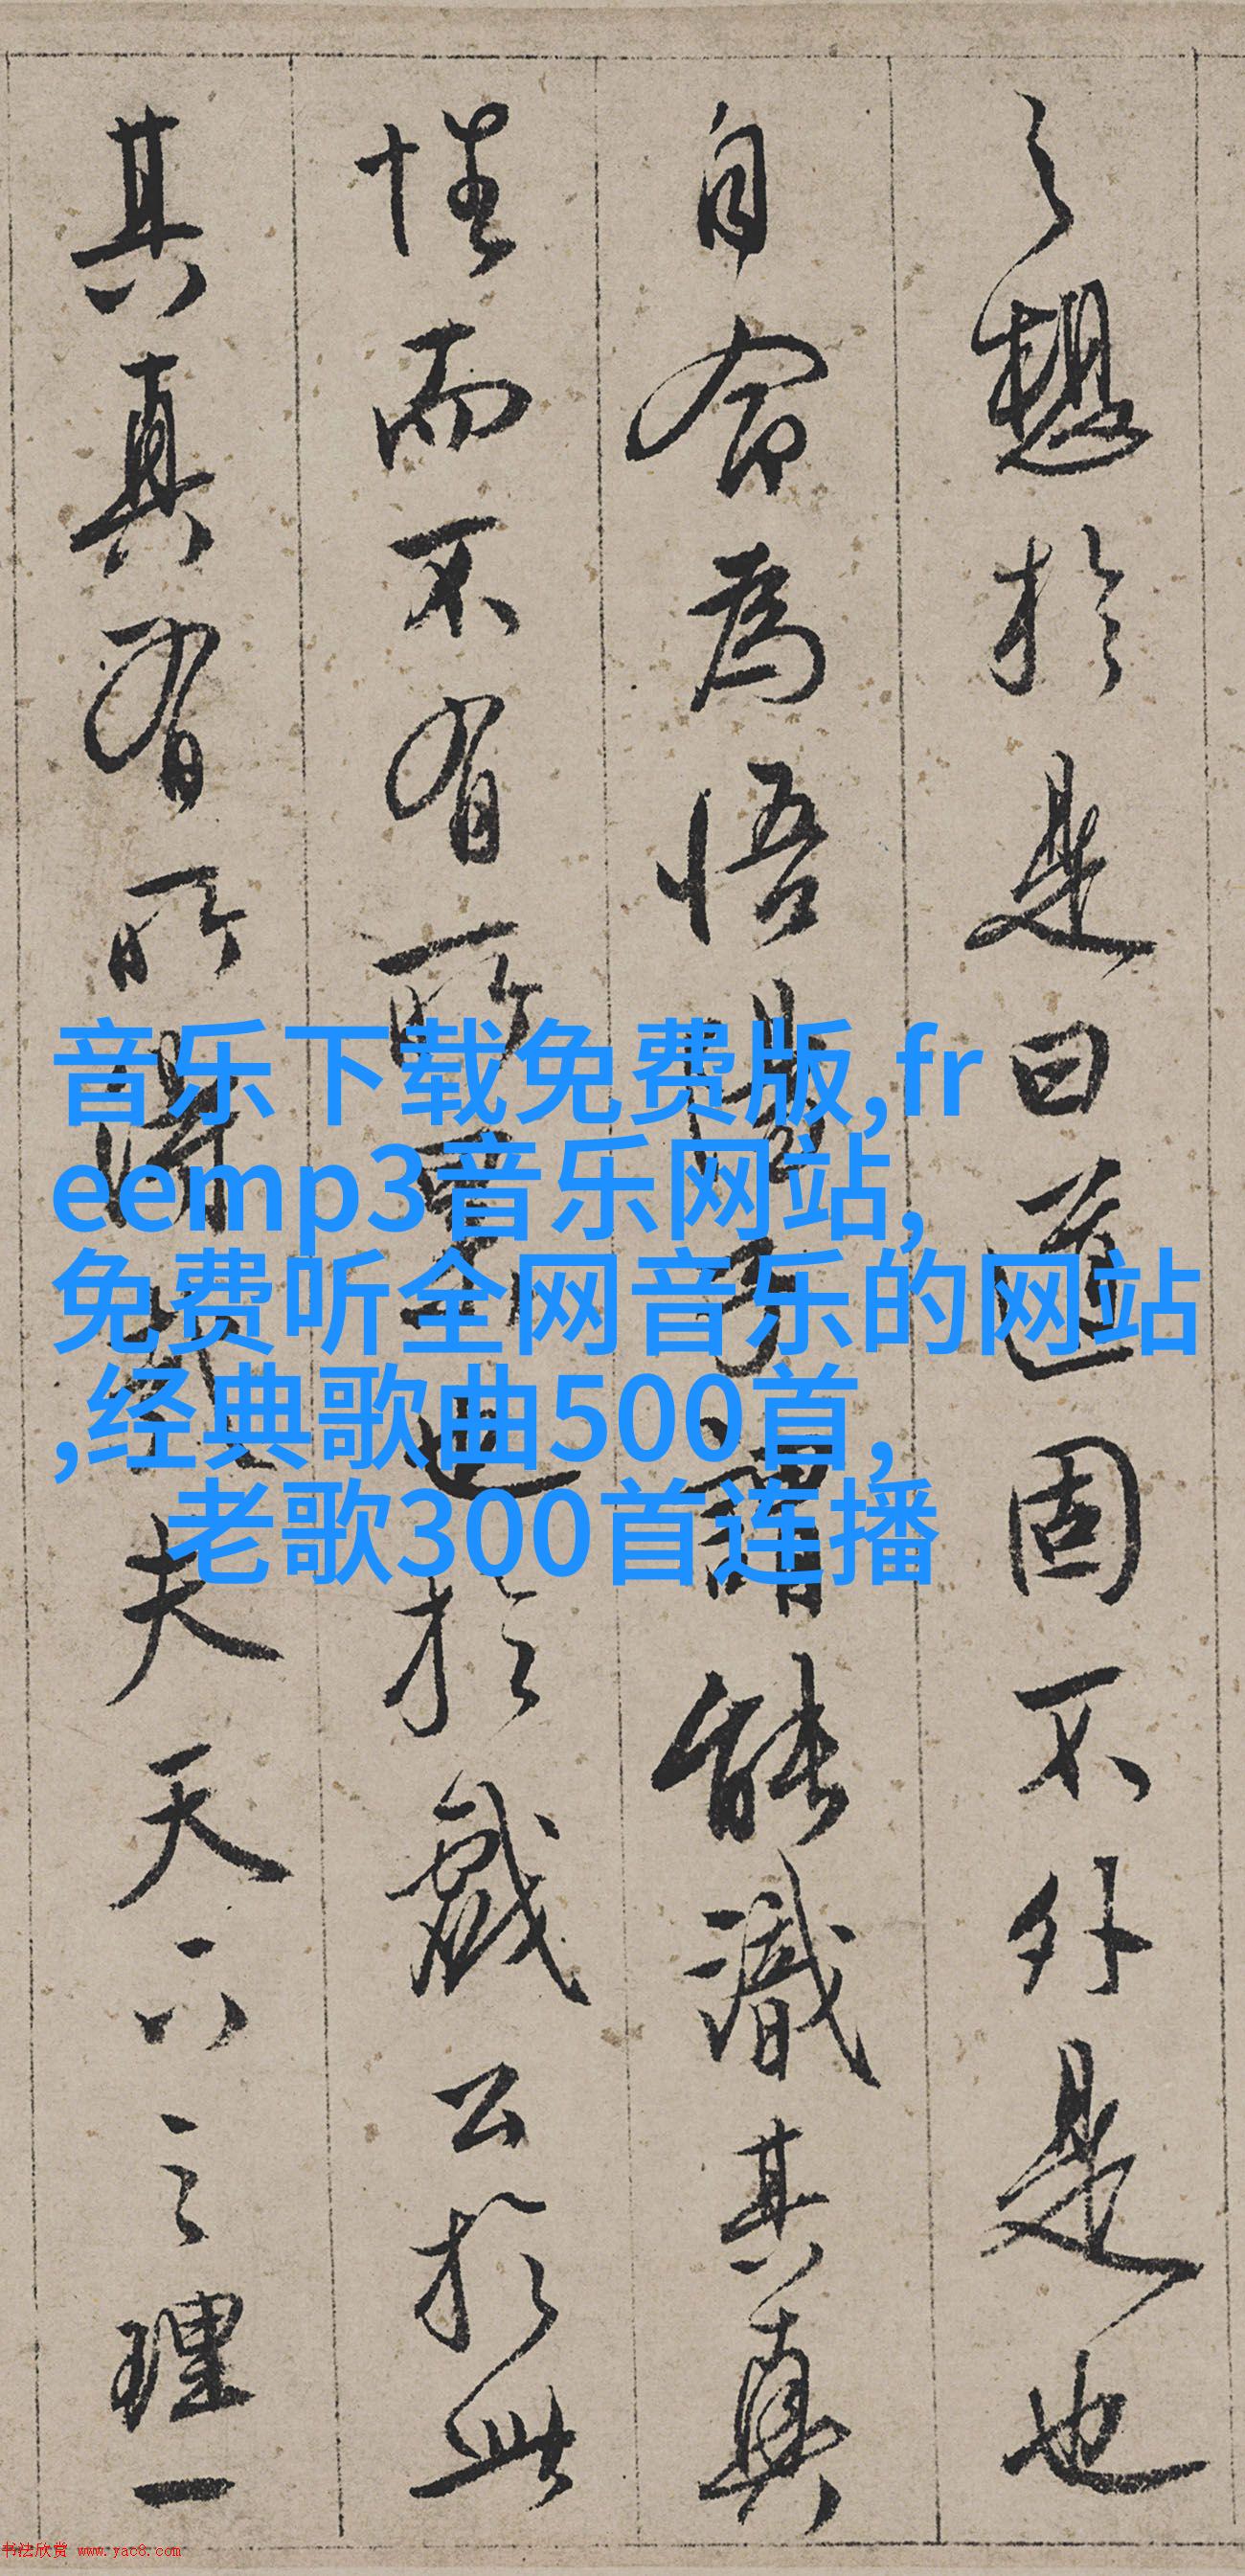 之想於是曰道固不外是也
自命為悟
能識其真
性而不有所
也於戲公於此
其真有所
夫天下之理一
音乐下载免费版,fr
eemp3音乐网站,
免费听全网音乐的网站
,经典歌曲500首,
老歌300首连播
书法欣赏 www.yac8.com